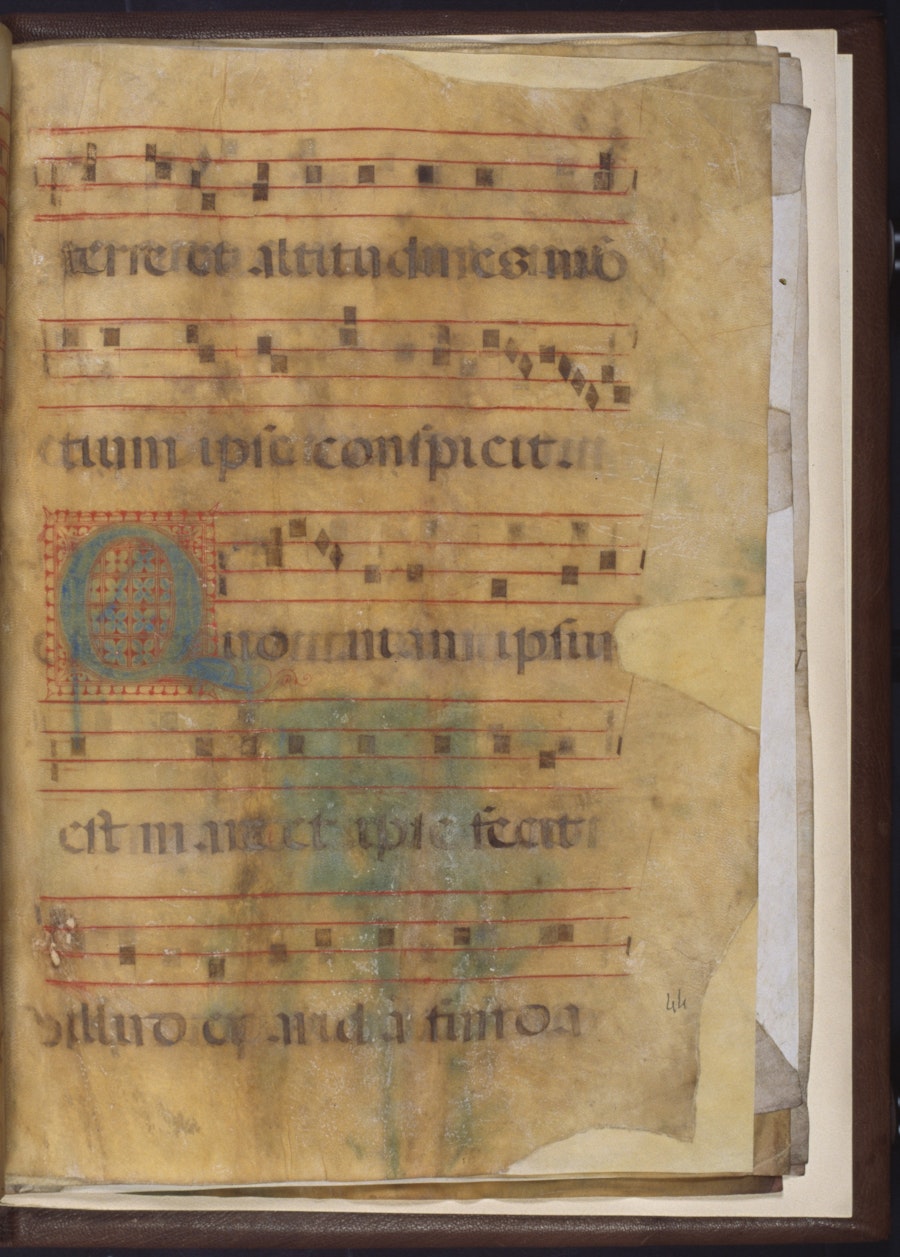 terre et altitudines mo
ctium ipse conspicit.
Quoniam ipsiu
est mare et ipse fecit
illud et arida funda
44